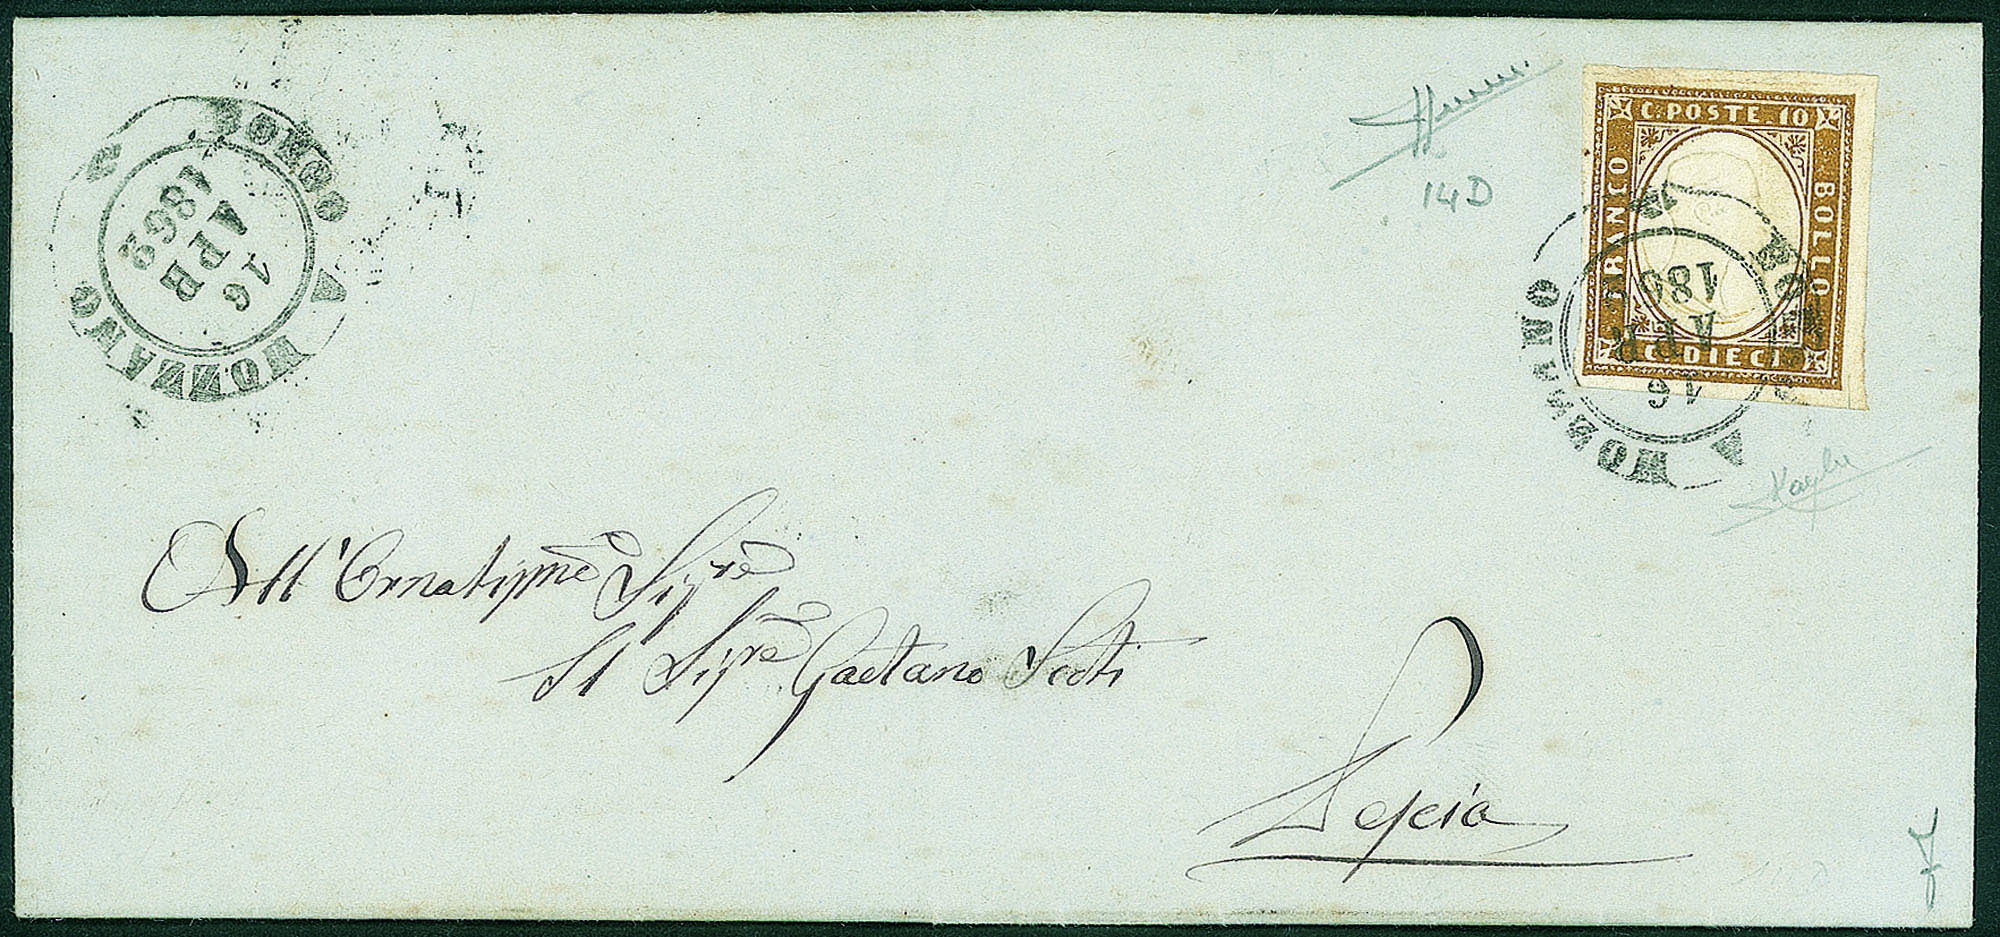 BORGO A MOZZANO
16
APR
1862
C. POSTE. 10
FRANCO
BOLLO
C. DIECI
BORGO A MOZZANO
16
APR
186
14D
All' Ornatissmẽ Sigrẽ
Il Sigrẽ Gaetano Scoti
Pescia